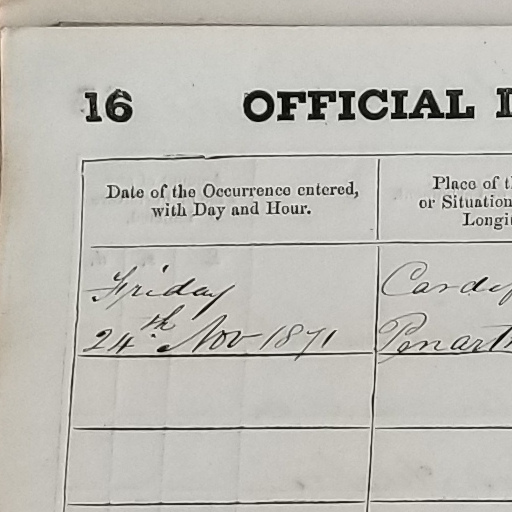 16 OFFICIAL
Date of the Occurrence entered,
with Day and Hour.
Place of
or Situation
Friday
24th Nov 1871